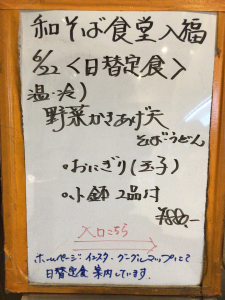 和そば食堂 入福
6/22 <日替定食>
温・冷)
野菜かきあげ天
そばorうどん
・おにぎり(玉子)
・小鉢 2品付
¥880.-
入口こちら
ホームページ インスタ・グーグルマップにて
日替定食 案内しています.